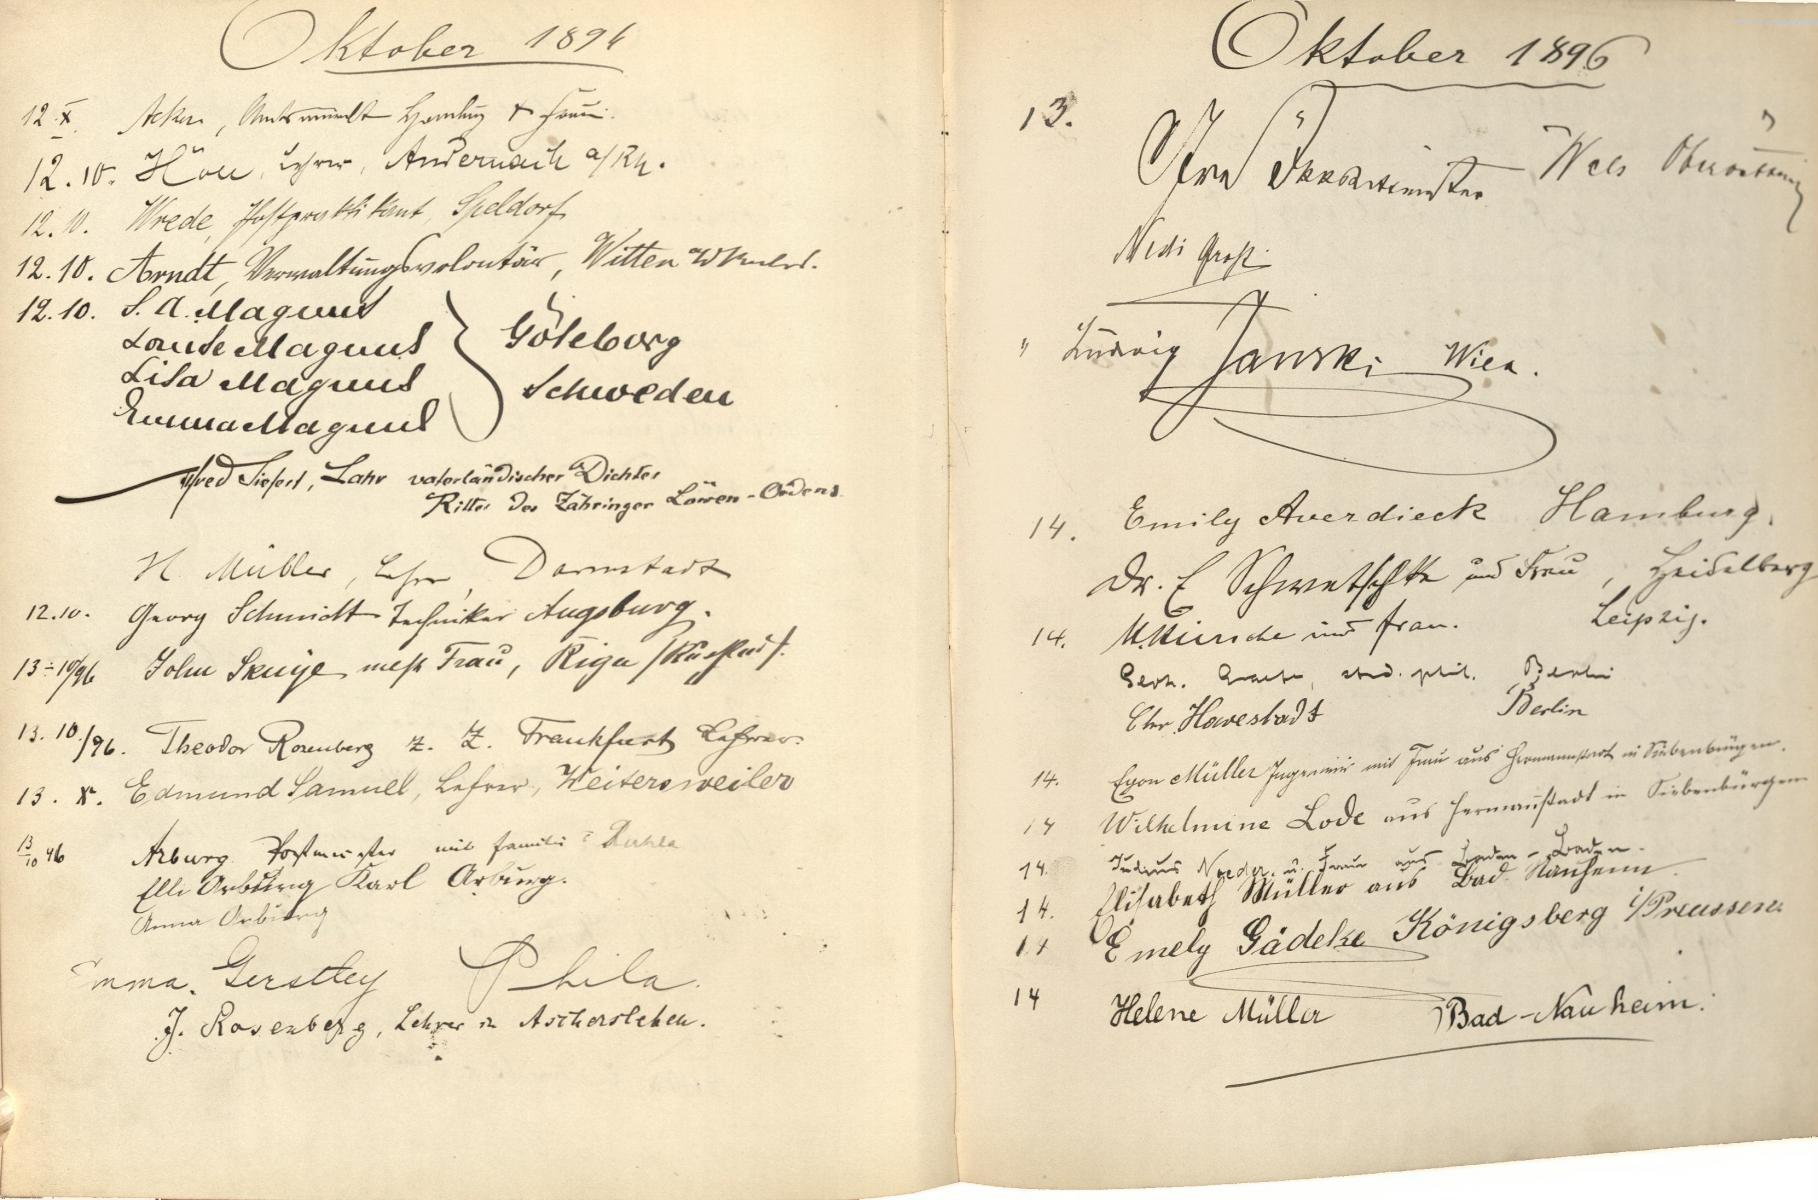 Oktober 1896
12 X. Acker, Hamburg & Frau.
12.10. Höll, Lehrer, Andernach a/Rh.
12.10. Wrede, Postpraktikant, Speldorf
12.10. Arndt, Verwaltungsvolontär, Witten
12.10. S. A. Magnus
Louise Magnus
Göteborg
Lisa Magnus
Schweden
Emma Magnus
Alfred Siefert, Lahr vaterländischer Dichter
Ritter des Zähringer Löwen-Ordens
H. Müller, Lehrer, Darmstadt
12.10. Georg Schmidt Techniker Augsburg.
13-10/96 John Skuje nebst Frau, Riga
13.10./96. Theodor Rosenberg z. Z. Frankfurt Lehrer.
13. X. Edmund Samuel, Lehrer, Weitersweiler
13/10 96 Arburg Postmeister mit Familie Ruhla
Elli Arburg Karl Arburg.
Anna Arburg
Emma Gerstley Phila.
J. Rosenberg, Lehrer in Aschersleben.
Oktober 1896
13. Wels
Nedi Groß
" Ludwig Janski Wien.
14. Emily Averdieck Hamburg.
Dr. E Schwetschke und Frau, Heidelberg
14. und Frau. Leipzig.
Gerh. stud. phil. Berlin
Chr. Havestadt Berlin
14. Egon Müller Ingenieur mit Frau aus Hermannstadt in Siebenbürgen.
14 Wilhelmine Lode aus Hermannstadt in Siebenbürgen
14. u. Frau aus Baden-Baden.
14. Elisabeth Müller aus Bad Nauheim
14 Emely Gädeke Königsberg i/Preussen.
14 Helene Müller Bad-Nauheim.